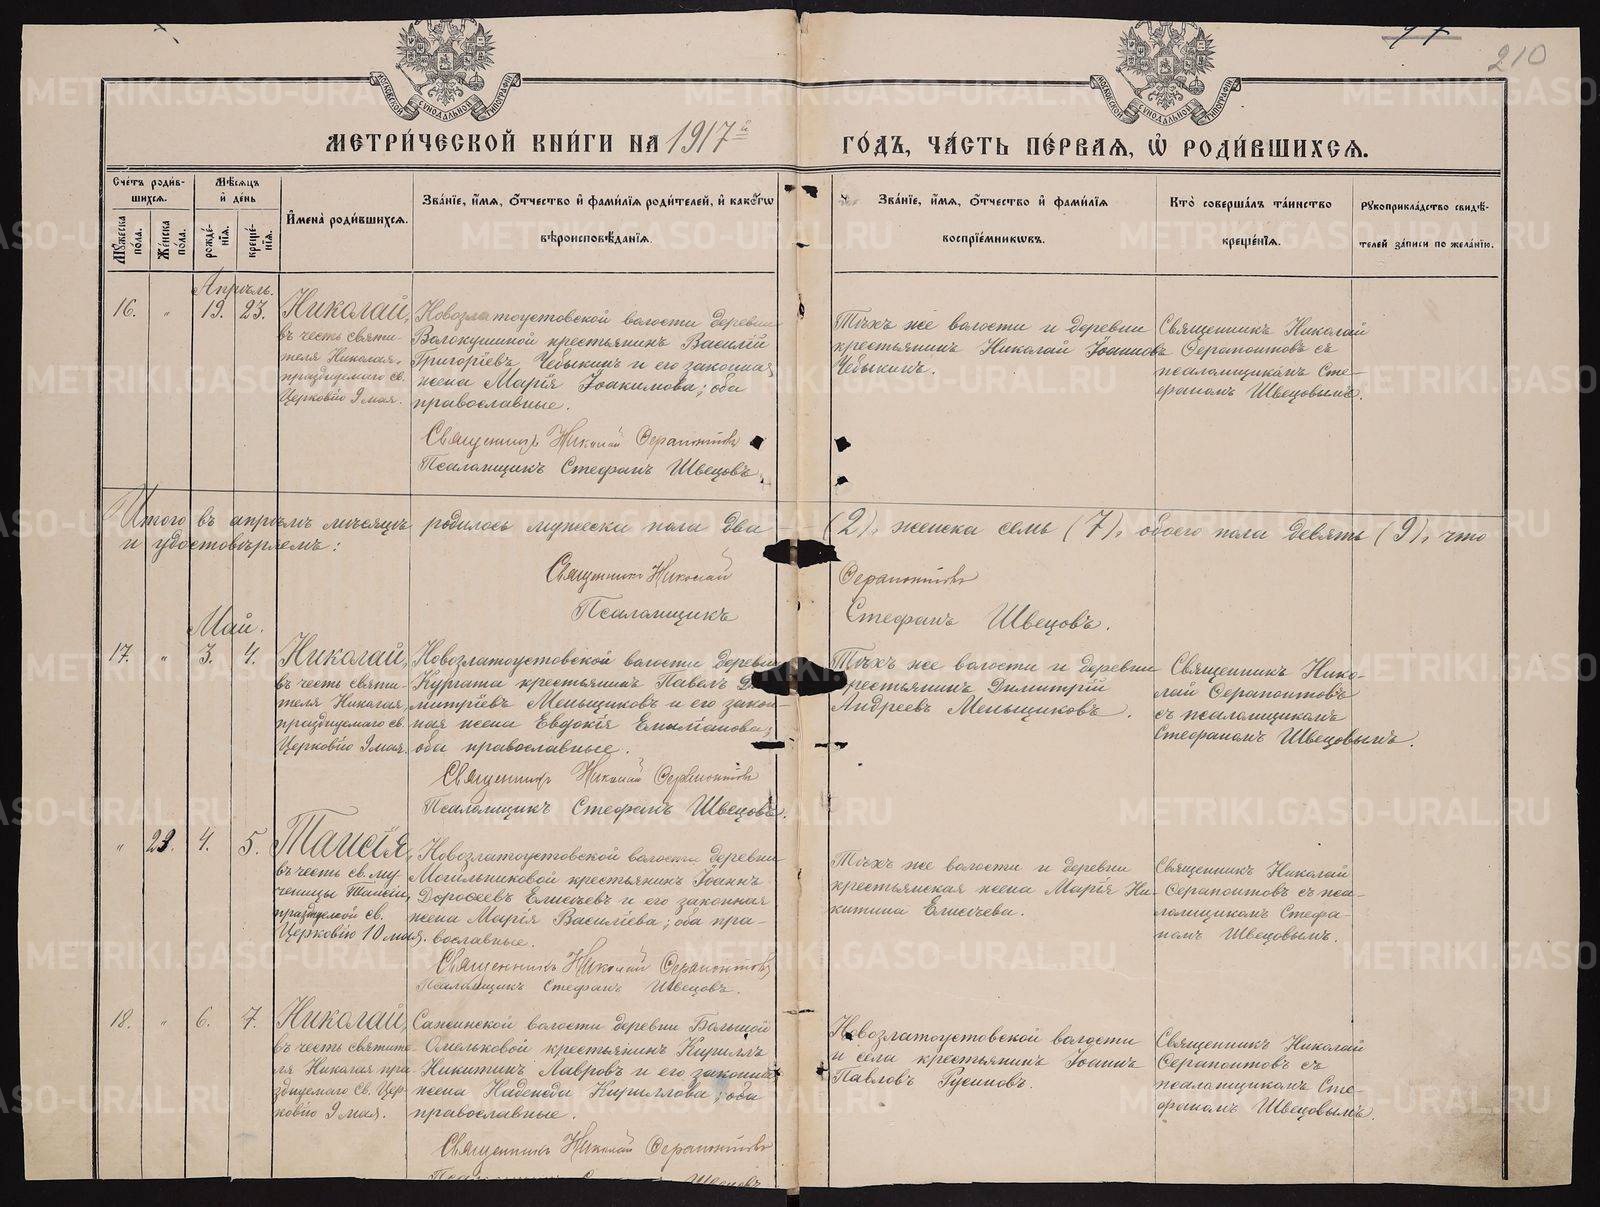 210
МЕТРИ́ЧЕСКОЙ КНИ́ГИ НА 1917й ГО́ДЪ, ЧА́СТЬ ПЕ́РВАЯ, Ѡ РОДИ́ВШИХСЯ.
Сче́тъ роди́в-
шихся.
Мѣ́сяцъ
и де́нь
Му́жеска по́ла.
Же́нска по́ла.
рожде́-
нїя.
креще́-
нїя.
Имена̀ роди́вшихся.
Зва́нїе, и́мя, о́тчество и фами́лїя роди́телей, и како́гѡ
вѣроисповѣ́данїя.
Зва́нїе, и́мя, о́тчество и фами́лїя
воспрїе́мникѡвъ.
Кто̀ соверша́лъ та́инство
креще́нїя.
Рукоприкла́дство свидѣ́-
телей за́писи по жела́нїю.
Апрѣль.
16. " 19. 23.
Николай,
въ честь святи-
теля Николая,
празднуемаго св.
Церковію 9 мая.
Новозлатоустовской волости деревни
Волокушиной крестьянинъ Василій
Григоріевъ Чебыкинъ и его законная
жена Марія Іоакимова; оба
православные.
Священникъ Николай Ѳерапонтовъ
Псаломщикъ Стефанъ Швецовъ.
Тѣхъ же волости и деревни
крестьянинъ Николай Іоанновъ
Чебыкинъ.
Священникъ Николай
Ѳерапонтовъ съ
псаломщикомъ Сте-
фаномъ Швецовымъ.
Итого въ апрѣлѣ мѣсяцѣ родилось мужеска пола два (2), женска семь (7), обоего пола девять (9), что
и удостовѣряемъ:
Священникъ Николай Ѳерапонтовъ
Псаломщикъ Стефанъ Швецовъ.
Май.
17. " 3. 4.
Николай,
въ честь святи-
теля Николая,
празднуемаго св.
Церковію 9 мая.
Новозлатоустовской волости деревни
Кургата крестьянинъ Павелъ Ди-
митріевъ Меньщиковъ и его закон-
ная жена Евдокія Емиліанова;
оба православные.
Священникъ Николай Ѳерапонтовъ
Псаломщикъ Стефанъ Швецовъ.
Тѣхъ же волости и деревни
крестьянинъ Димитрій
Андреевъ Меньщиковъ.
Священникъ Нико-
лай Ѳерапонтовъ
съ псаломщикомъ
Стефаномъ Швецовымъ.
" 4. 5.
Таисія,
въ честь св. му-
ченицы Таисіи,
празднуемой св.
Церковію 10 мая.
Новозлатоустовской волости деревни
Могильниковой крестьянинъ Іоаннъ
Дороѳеевъ Елисѣевъ и его законная
жена Марія Василіева; оба пра-
вославные.
Священникъ Николай Ѳерапонтовъ
Псаломщикъ Стефанъ Швецовъ.
Тѣхъ же волости и деревни
крестьянская жена Марія Ни-
китина Елисѣева.
Священникъ Николай
Ѳерапонтовъ съ пса-
ломщикомъ Стефа-
номъ Швецовымъ.
18. " 6. 7.
Николай,
въ честь святите-
ля Николая пра-
зднуемаго св. Цер-
ковію 9 мая.
Сажинской волости деревни Большой
Омельковой крестьянинъ Кириллъ
Никитинъ Лавровъ и его законная
жена Надежда Кириллова; оба
православные.
Священникъ Николай Ѳерапонтовъ
Новозлатоустовской волости
и села крестьянинъ Іоаннъ
Павловъ Русиновъ.
Священникъ Николай
Ѳерапонтовъ съ
псаломщикомъ Сте-
фаномъ Швецовымъ.
METRIKI.GASO-URAL.RU